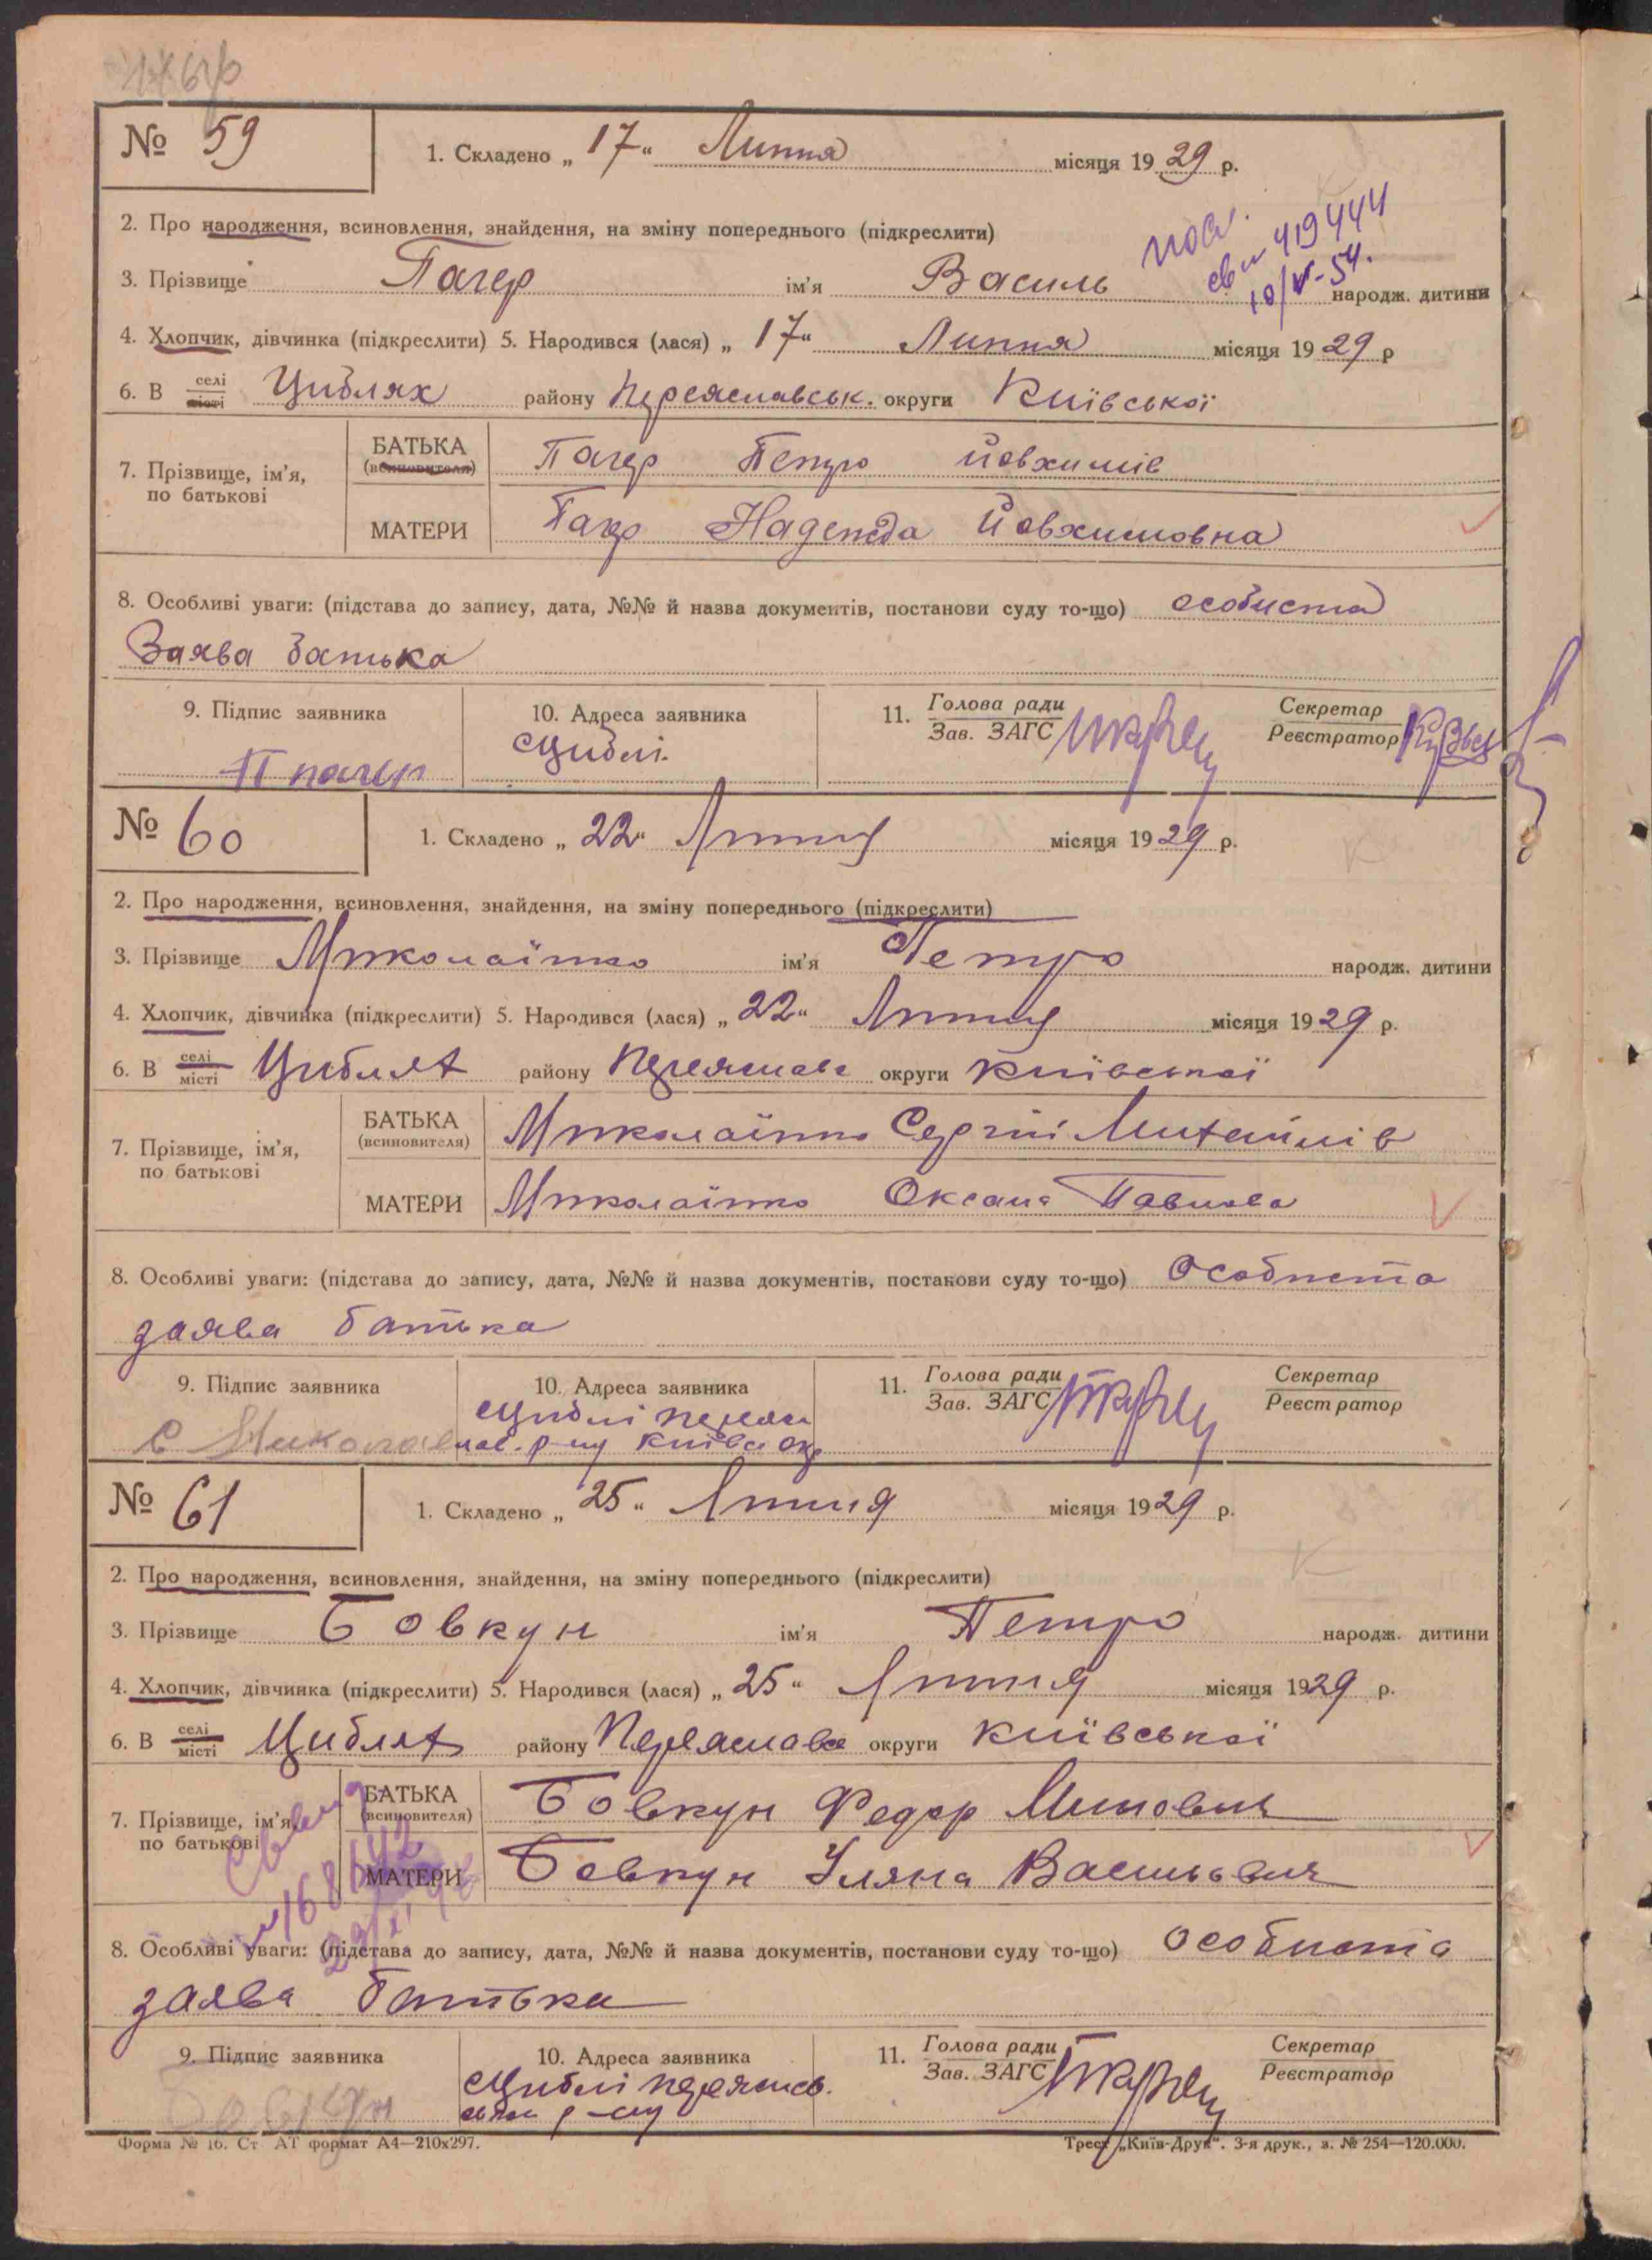 № 59
1. Складено „ 17 “ Липня місяця 1929 р.
2. Про народження, всиновлення, знайдення, на зміну попереднього (підкреслити)
пов.
св. 419444
10/V-54.
3. Прізвище Пагер ім’я Василь народж. дитини
4. Хлопчик, дівчинка (підкреслити) 5. Народився (лася) „ 17 “ Липня місяця 1929 р
6. В селі місті Циблях району Переяславськ. округи Київської
7. Прізвище, ім’я, по батькові
БАТЬКА (всиновителя) Пагер Петро Йовхимів
МАТЕРИ Пагер Надежда Йовхимовна
8. Особливі уваги: (підстава до запису, дата, №№ й назва документів, постанови суду то-що) особиста
Заява батька
9. Підпис заявника 10. Адреса заявника 11. Голова ради Зав. ЗАГС Секретар Реєстратор
П пагер с Циблі.
№ 60
1. Складено „ 22 “ Липня місяця 1929 р.
2. Про народження, всиновлення, знайдення, на зміну попереднього (підкреслити)
3. Прізвище Миколаїнко ім’я Петро народж. дитини
4. Хлопчик, дівчинка (підкреслити) 5. Народився (лася) „ 22 “ Липня місяця 1929 р.
6. В селі місті Циблях району Переяслав округи Київської
7. Прізвище, ім’я, по батькові
БАТЬКА (всиновителя) Миколаїнко Сергій Михайлів
МАТЕРИ Миколаїнко Оксана Павлова
8. Особливі уваги: (підстава до запису, дата, №№ й назва документів, постанови суду то-що) Особиста
заява батька
9. Підпис заявника 10. Адреса заявника 11. Голова ради Зав. ЗАГС Секретар Реєстратор
с Циблі Переяс
лав. р-ну Київс окр
№ 61
1. Складено „ 25 “ Липня місяця 1929 р.
2. Про народження, всиновлення, знайдення, на зміну попереднього (підкреслити)
3. Прізвище Бовкун ім’я Петро народж. дитини
4. Хлопчик, дівчинка (підкреслити) 5. Народився (лася) „ 25 “ Липня місяця 1929 р.
6. В селі місті Циблях району Переяслав округи Київської
7. Прізвище, ім’я, по батькові
БАТЬКА (всиновителя) Бовкун Федор Минович
МАТЕРИ Бовкун Уляна Васильвич
8. Особливі уваги: (підстава до запису, дата, №№ й назва документів, постанови суду то-що) особиста
заява батька
9. Підпис заявника 10. Адреса заявника 11. Голова ради Зав. ЗАГС Секретар Реєстратор
Бовкун с Циблі Переяслав.
р-ну
Форма № 16. Ст АТ формат А4—210х297.
Трест „Київ-Друк“. 3-я друк., з. № 254—120.000.